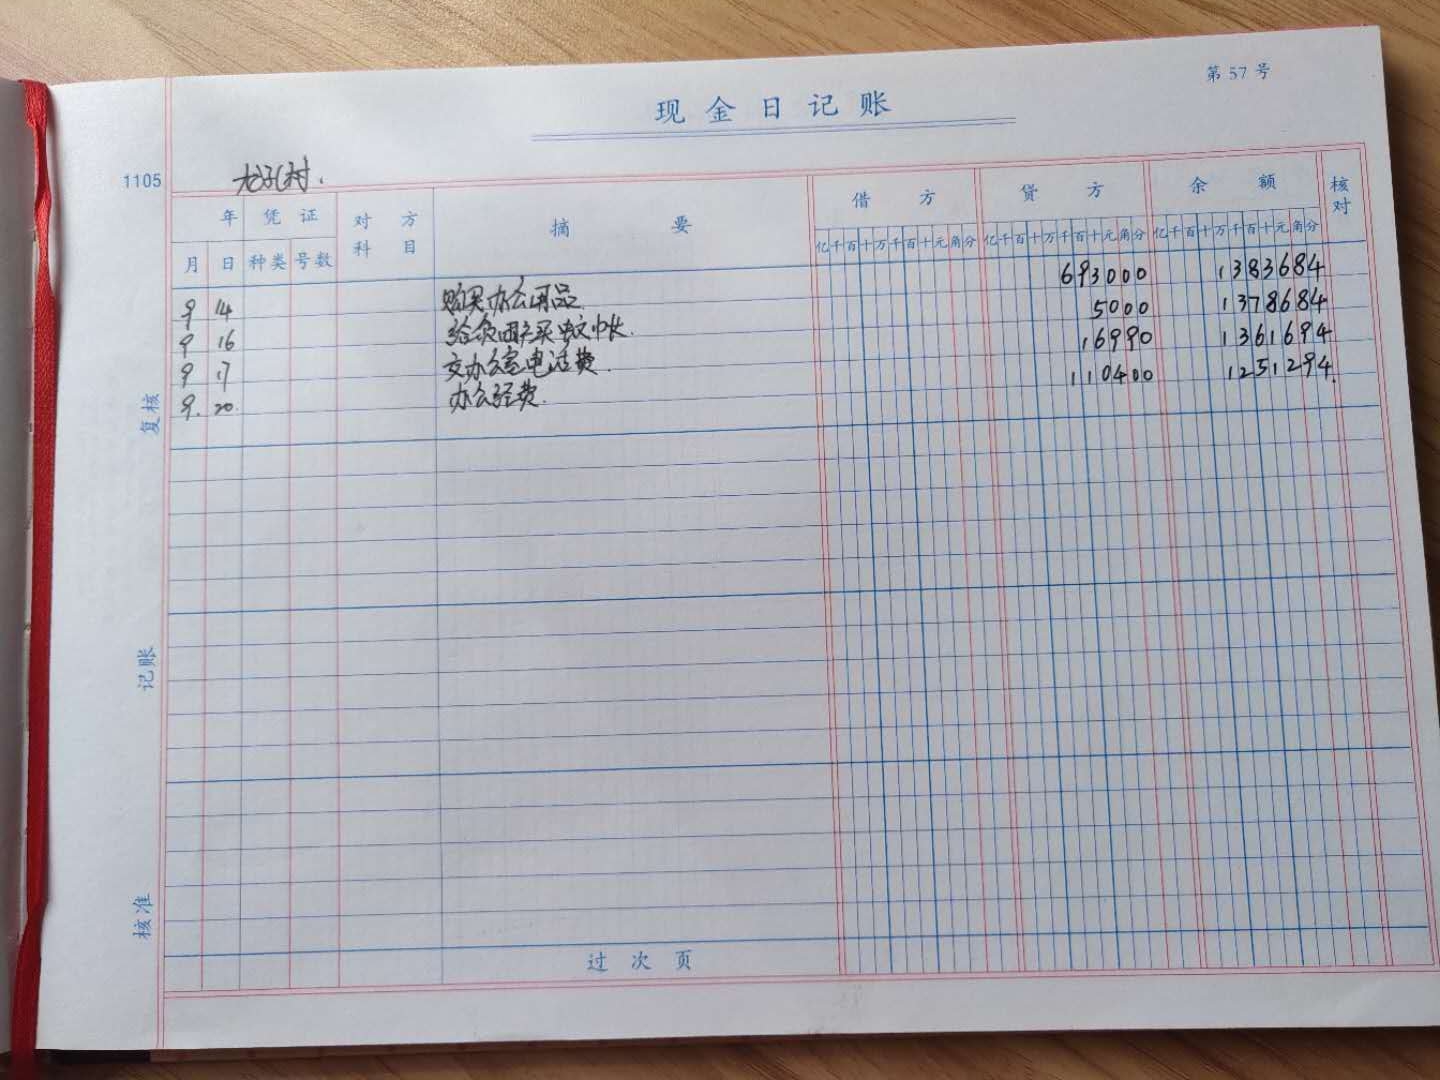 第 57 号
现金日记账
1105
年 凭证 对方科目 摘要 借方 贷方 余额 核对
月 日 种类 号数 亿千百十万千百十元角分 亿千百十万千百十元角分 亿千百十万千百十元角分
9 14 购买办公用品 693000 1383684
9 16 给 买蚊巾长. 5000 1378684
9 17 交办公室电话费. 16990 1361694
9. 20. 办公经费. 110400 1251294.
复核
记账
核准
过次页